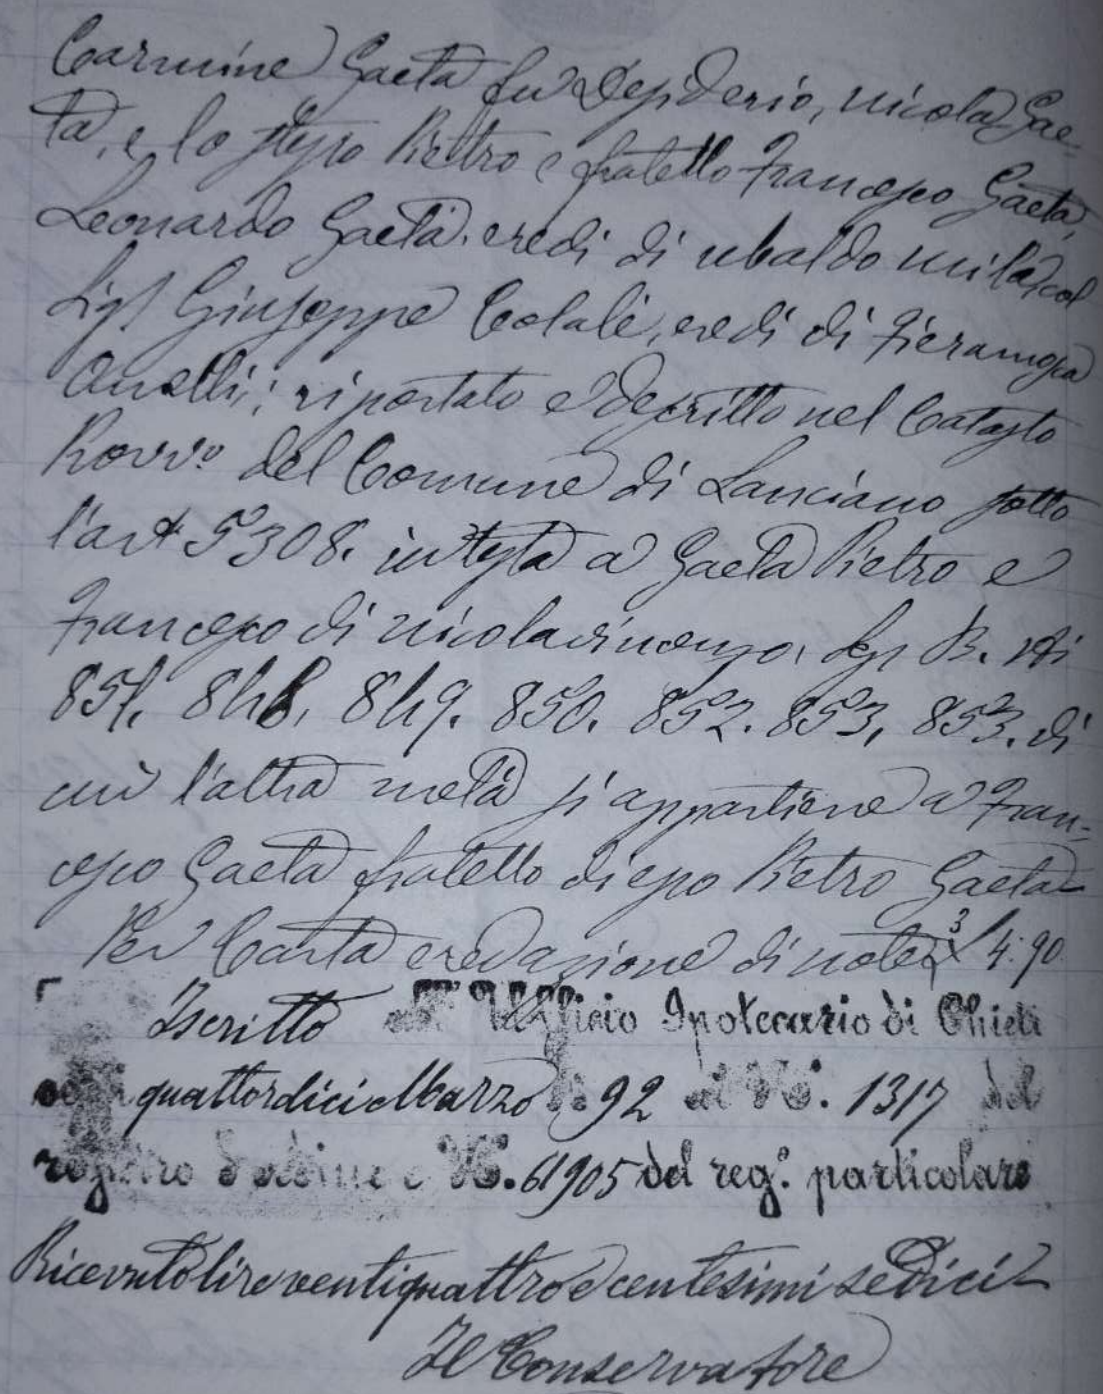 Carmine Gaeta fu Desiderio, Nicola Gae-
ta, e lo stesso Pietro e fratello Francesco Gaeta,
Leonardo Gaeta, eredi di Ubaldo
Giuseppe Colalè, eredi di Fieramosca
Anelli; riportato e descritto nel Catasto
Provvo del Comune di Lanciano sotto
l'art 5308. in testa a Gaeta Pietro e
Francesco di Nicolavincenzo, Sez B. Ni
851. 848, 849. 850. 852. 853, 853. di
cui l'altra metà si appartiene a Fran-
cesco Gaeta fratello di esso Pietro Gaeta
Per Carta e redazione di note 3 £ 4.90
Iscritto all'Ufficio Ipotecario di Chieti
quattordici Marzo 92 al No. 1317 del
registro d'ordine e No. 61905 del reg.o particolare
Ricevuto lire ventiquattro e centesimi sedici
Il Conservatore